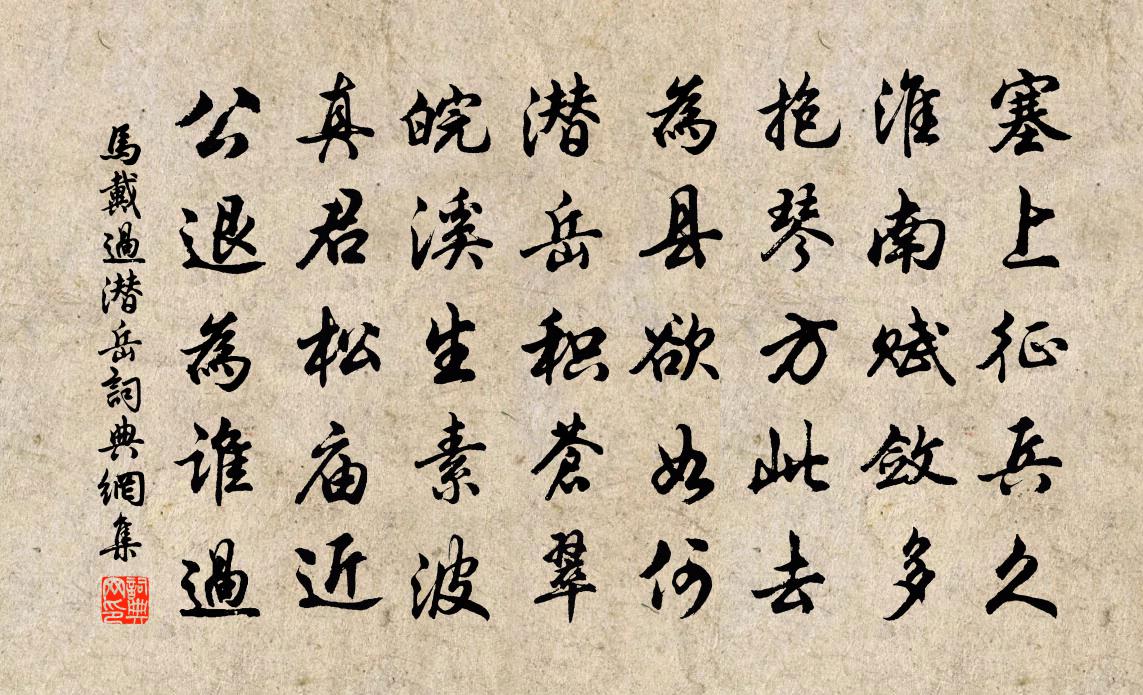 塞上征兵久
淮南赋敛多
抱琴方此去
為县欲如何
潜岳积苍翠
皖溪生素波
真君松庙近
公退為谁過
馬戴過潜岳詞典網集
詞典网印